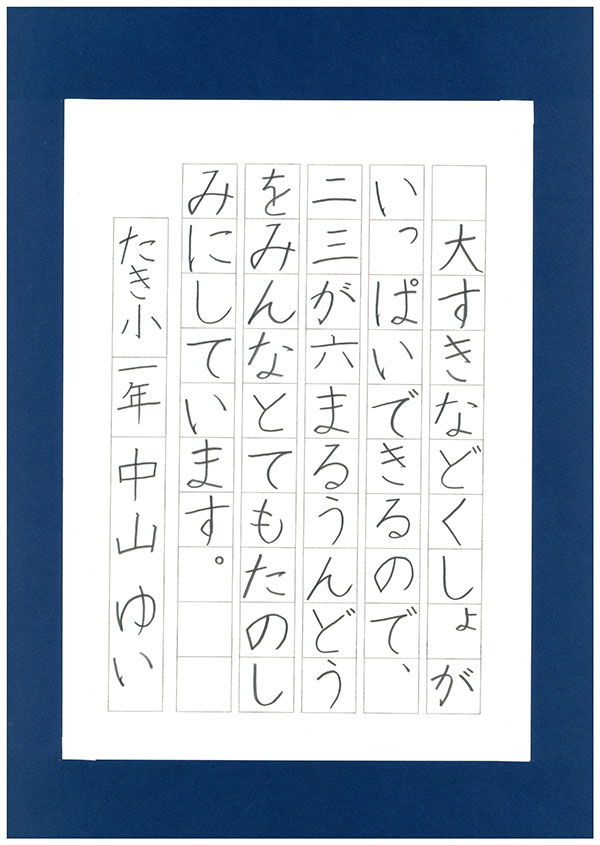 大すきなどくしょが
いっぱいできるので、
二三が六まるうんどう
をみんなとてもたのし
みにしています。
たき小一年中山ゆい